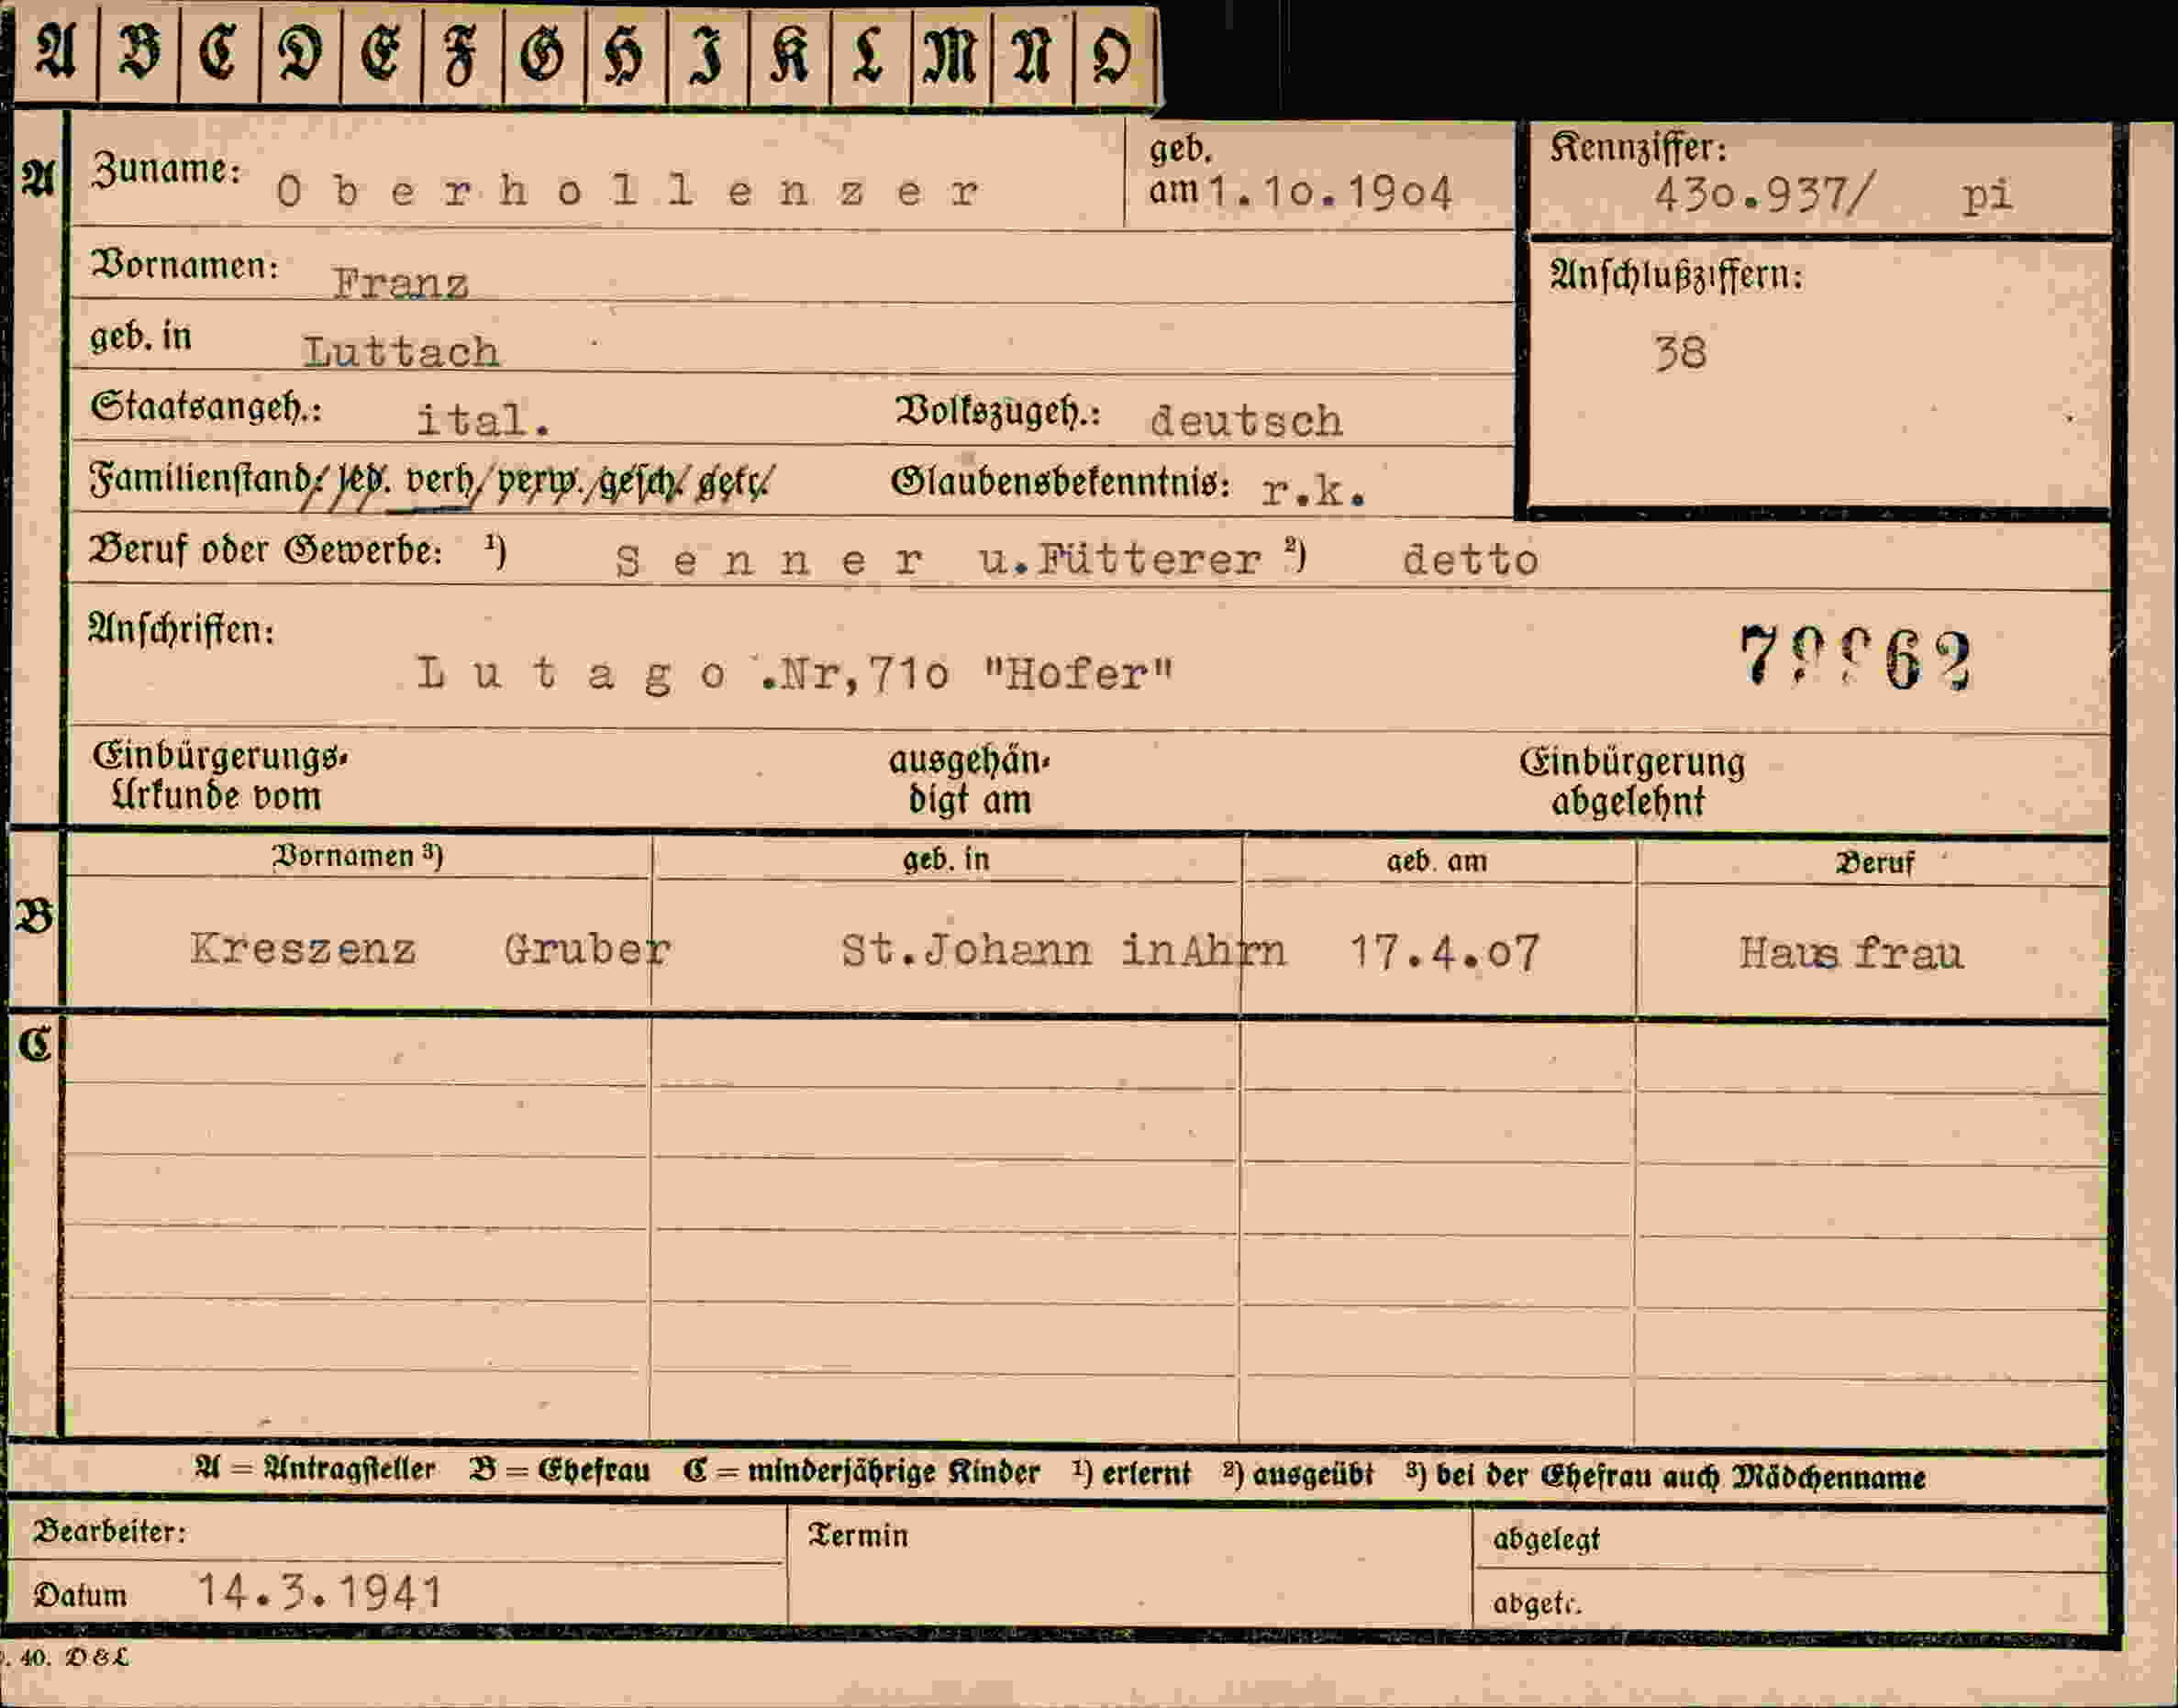 A B C D E F G H I K L M N O
A Zuname: Oberhollenzer geb. am 1.10.1904 Kennziffer: 430.937/ pi
Vornamen: Franz
Anschlußziffern:
geb. in Luttach
38
Staatsangeh.: ital. Volkszugeh.: deutsch
Familienstand: led. verh/ verw. gesch. getr. Glaubensbekenntnis: r.k.
Beruf oder Gewerbe: ¹) Senner u.Fütterer ²) detto
Anschriften:
Lutago .Nr,710 "Hofer"
Einbürgerungs- Urkunde vom ausgehän- digt am Einbürgerung abgelehnt
Vornamen ³) geb. in geb. am Beruf
B Kreszenz Gruber St.Johann inAhrn 17.4.07 Hausfrau
C
A = Antragsteller B = Ehefrau C = minderjährige Kinder ¹) erlernt ²) ausgeübt ³) bei der Ehefrau auch Mädchenname
Bearbeiter: Termin abgelegt
Datum 14.3.1941 abgetr.
. 40. D&L